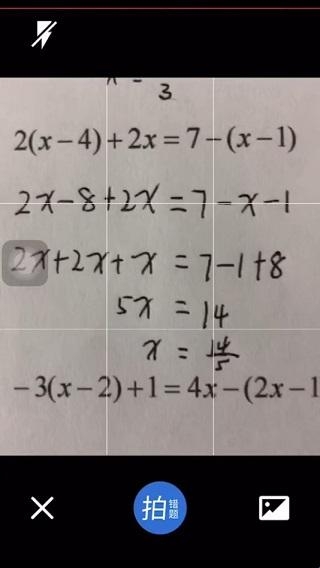 3
2(x-4)+2x=7-(x-1)
2x-8+2x=7-x-1
2x+2x+x=7-1+8
5x=14
x=14/5
-3(x-2)+1=4x-(2x-1
拍错题